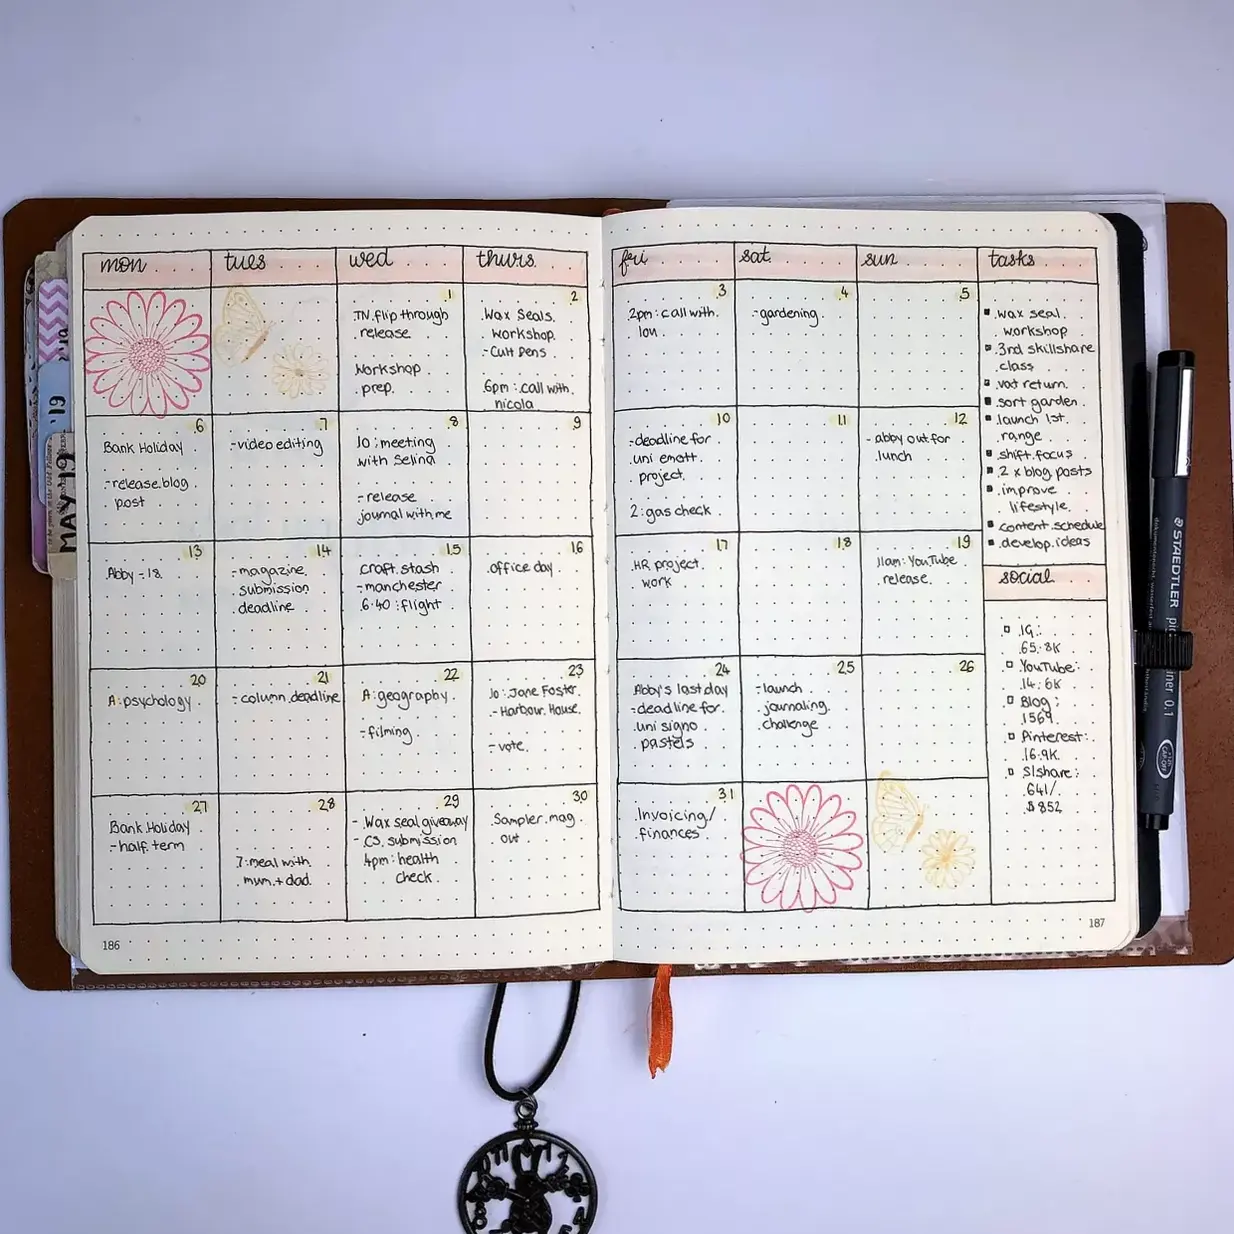 mon
tues
wed
thurs
fri
sat
sun
tasks
1
TN flip through
release
workshop
prep.
2
Wax Seals
workshop
- Cult Pens
6pm: call with
nicola
3
2pm: call with
lou
4
- gardening
5
6
Bank Holiday
- release blog
post
7
- video editing
8
10: meeting
with Selina
- release
journal with me
9
10
- deadline for
uni emott
project
2: gas check
11
12
- abby out for
lunch
13
Abby - 18
14
- magazine
submission
deadline
15
craft stash
- manchester
6.40: flight
16
office day
17
HR project
work
18
19
11am: YouTube
release
20
A: psychology
21
- column deadline
22
A: geography
- filming
23
10: Jane Foster
- Harbour House
- vote
24
Abby's last day
- deadline for
uni signo
pastels
25
- launch
journaling
challenge
26
27
Bank Holiday
- half term
28
7: meal with
mum + dad
29
- Wax seal giveaway
- CS submission
4pm: health
check
30
Sampler mag
out
31
Invoicing/
finances
wax seal
workshop
3rd skillshare
class
vat return
sort garden
launch 1st
range
shift focus
2 x blog posts
improve
lifestyle
content schedule
develop ideas
social
IG:
65.8K
YouTube:
14.6K
Blog:
1569
Pinterest:
16.9K
S/share:
641/
$852
186
187
MAY '19
'19
STAEDTLER